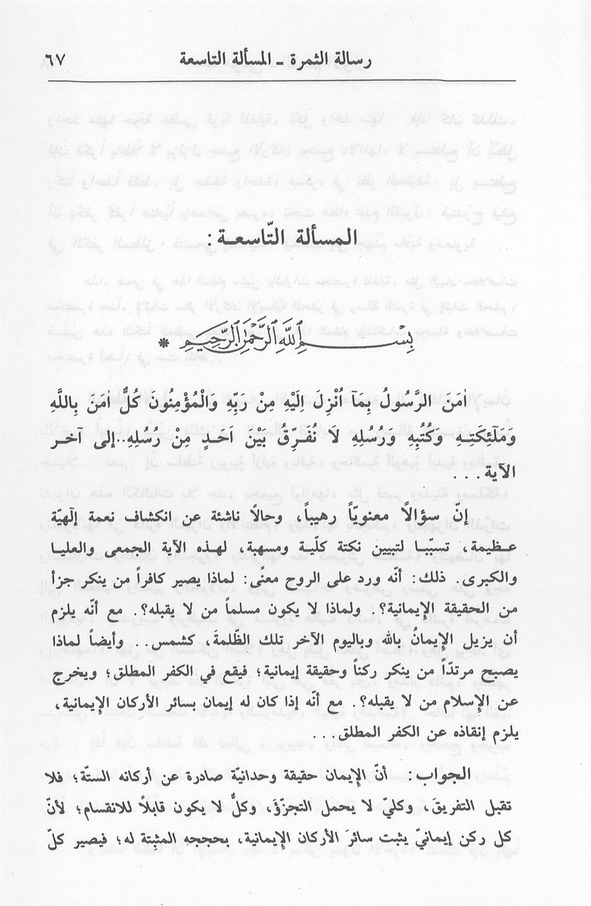 رسالة الثمرة - المسألة التاسعة ٦٧
المسألة التّاسعـة :
بِسْــــمِ اللهِ الرَّحْمٰنِ الرَّحِيمِ *
اٰمَنَ الرَّسُولُ بِمَآ اُنْزِلَ اِلَيْهِ مِنْ رَبِّهِ وَالْمُؤْمِنُونَ كُلٌّ اٰمَنَ بِاللَّهِ
وَمَلَٓئِكَتِـهِ وَكُتُبِهِ وَرُسُلِهِ لَا نُفَـرِّقُ بَيْنَ اَحَـدٍ مِنْ رُسُلِهِ..إلى آخـر
الآية...
إنّ سؤالاً معنويّاً رهيباً، وحالًا ناشئة عن انكشاف نعمة إلٓهيّة
عـظيمة، تسبّبـا لتبيين نكتة كلّيـة ومسهبة، لهـذه الآية الجمعى والعليـا
والكبرى. ذلك: أنّه ورد على الروح معنًى: لماذا يصير كافراً من ينكر جزأ
من الحقيقة الإيمانية؟. ولماذا لا يكون مسلماً من لا يقبله؟. مع أنّه يلزم
أن يزيل الإيمانُ بالله وباليوم الآخر تلك الظّلمةَ، كشمس.. وأيضاً لماذا
يصبح مرتدّاً من ينكر ركناً وحقيقة إيمانية؛ فيقع في الكفر المطلق؛ ويخرج
عن الإسلام من لا يقبله؟. مع أنّه إذا كان له إيمان بسائر الأركان الإيمانية،
يلزم إنقاذه عن الكفر المطلق...
الجواب: أنّ الإيمان حقيقة وحدانيّة صادرة عن أركانه الستّة؛ فلا
تقبل التفريق، وكليّ لا يحمل التجزّؤَ، وكلٌّ لا يكون قابلاً للانقسام؛ لأنّ
كل ركن إيمانيّ يثبت سائرَ الأركان الإيمانية، بحججه المثبِتة له؛ فيصير كلّ